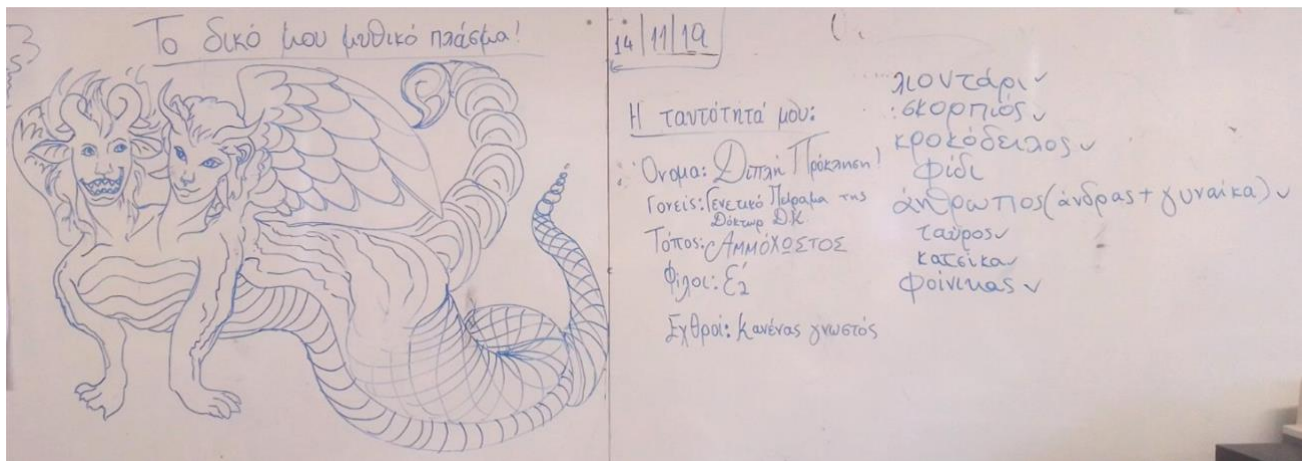 Το δικό μου μυθικό πλάσμα!
14/11/19
Η ταυτότητά μου:
Όνομα: Διπλή Πρόκληση!
Γονείς: Γενετικό Πείραμα της
Δόκτωρ Δ.Κ
Τόπος: ΑΜΜΌΧΩΣΤΟΣ
Φίλοι: Ε΄2
Εχθροί: Κανένας γνωστός
λιοντάρι ✓
σκορπιός ✓
κροκόδειλος ✓
φίδι
άνθρωπος (άνδρας + γυναίκα) ✓
ταύρος ✓
κατσίκα ✓
φοίνικας ✓